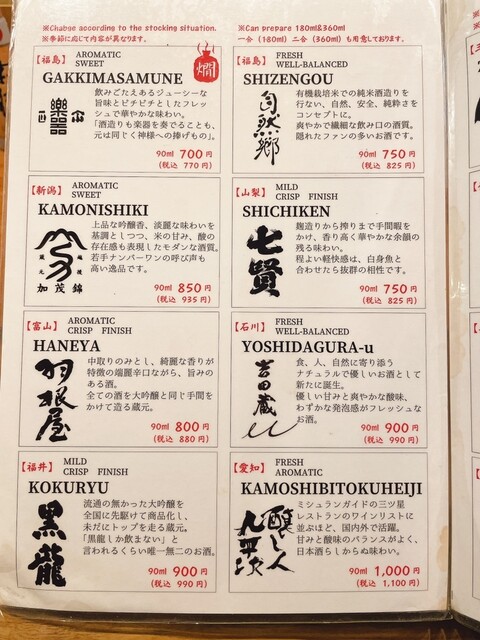 ※Chabge according to the stocking situation.
※季節に応じて内容が異なります。
※Can prepare 180ml&360ml
一合（180ml）二合（360ml）も用意しております。
【福島】
AROMATIC
SWEET
燗
GAKKIMASAMUNE
飲みごたえあるジューシーな
旨味とピチピチとしたフレッ
シュで華やかな味わい。
「酒造りも楽器を奏でることも、
元は同じく神様への捧げもの」。
90ml 700円
(税込 770円)
【福島】
FRESH
WELL-BALANCED
SHIZENGOU
自然郷
有機栽培米での純米酒造りを
行ない、自然、安全、純粋さを
コンセプトに。
爽やかで繊細な飲み口の酒質。
隠れたファンの多いお酒です。
90ml 750円
(税込 825円)
【新潟】
AROMATIC
SWEET
KAMONISHIKI
蔵元 越後
加茂錦
上品な吟醸香、淡麗な味わいを
基調としつつ、米の甘み、酸の
存在感も表現したモダンな酒質。
若手ナンバーワンの呼び声も
高い逸品です。
90ml 850円
(税込 935円)
【山梨】
MILD
CRISP FINISH
SHICHIKEN
七賢
麹造りから搾りまで手間暇を
かけ、香り高く華やかな余韻の
残る味わい。
程よい軽快感は、白身魚と
合わせたら抜群の相性です。
90ml 750円
(税込 825円)
【富山】
AROMATIC
CRISP FINISH
HANEYA
羽根屋
中取りのみとし、綺麗な香りが
特徴の端麗辛口ながら、旨みの
ある酒。
全ての酒を大吟醸と同じ手間を
かけて造る蔵元。
90ml 800円
(税込 880円)
【石川】
FRESH
WELL-BALANCED
YOSHIDAGURA-u
吉田蔵u
食、人、自然に寄り添う
ナチュラルで優しいお酒として
新たに誕生。
優しい甘みと爽やかな酸味、
わずかな発泡感がフレッシュな
お酒。
90ml 900円
(税込 990円)
【福井】
MILD
CRISP FINISH
KOKURYU
黒龍
流通の無かった大吟醸を
全国に先駆けて商品化し、
未だにトップを走る蔵元。
「黒龍しか飲まない」と
言われるくらい唯一無二のお酒。
90ml 900円
(税込 990円)
【愛知】
FRESH
AROMATIC
KAMOSHIBITOKUHEIJI
醸し人
九平次
ミシュランガイドの三ツ星
レストランのワインリストに
並ぶほど、国内外で活躍。
甘みと酸味のバランスがよく、
日本酒らしからぬ味わい。
90ml 1,000円
(税込 1,100円)